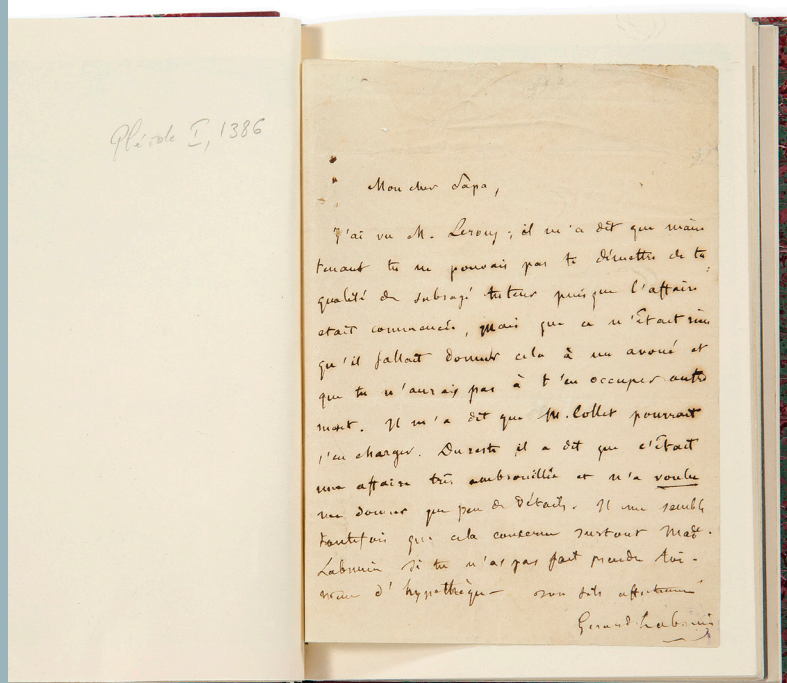 Pléiade I, 1386
Mon cher Papa,
J'ai vu M. Leroux ; il m'a dit que main
tenant tu ne pouvais pas te démettre de ta
qualité de subrogé tuteur puisque l'affaire
etait commencée, mais que ce n'était rien
qu'il fallait donner cela à un avoué et
que tu n'aurais pas à t'en occuper autre
ment. Il m'a dit que M. Collet pourrait
s'en charger. Du reste il a dit que c'était
une affaire très embrouillée et n'a voulu
me donner que peu de détails. Il me semble
toutefois que cela concerne surtout Mad.
Labrunie si tu n'as pas fait prendre toi-
même d'hypothèque — ton fils affectionné
Gerard Labrunie